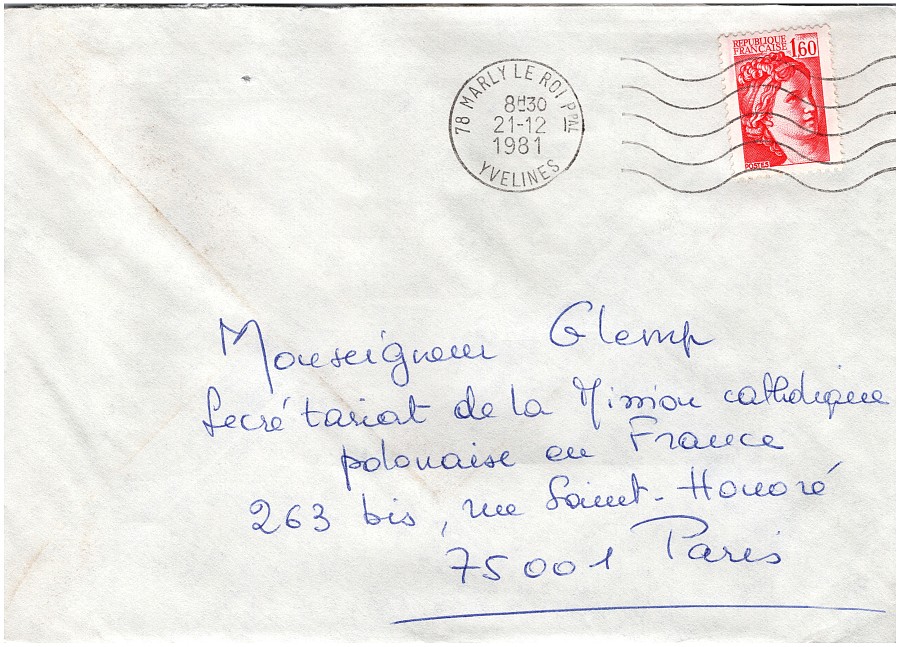 RÉPUBLIQUE
FRANÇAISE 1,60
POSTES
78 MARLY LE ROI PPAL
8H30
21-12
1981
YVELINES
Monseigneur Glemp
Secrétariat de la Mission catholique
polonaise en France
263 bis, rue Saint-Honoré
75001 Paris